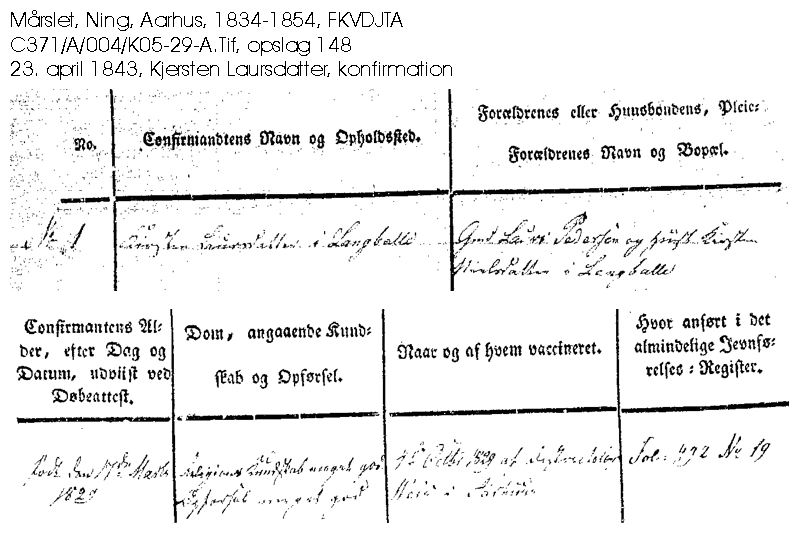 Mårslet, Ning, Aarhus, 1834-1854, FKVDJTA
C371/A/004/K05-29-A.Tif, opslag 148
23. april 1843, Kjersten Laursdatter, konfirmation
No.
Confirmandtens Navn og Opholdssted.
Forældrenes eller Huusbondens, Pleie:
Forældrenes Navn og Bopæl.
No 1
Kirsten Laursdatter i Langballe
Gmd Laurs Pedersen og Hust. Kirsten
Nielsdatter i Langballe
Confirmantens Al-
der, efter Dag og
Datum, udviist ved
Døbeattest.
Dom, angaaende Kund-
skab og Opførsel.
Naar og af hvem vaccineret.
Hvor anført i det
almindelige Jevnfø-
relses: Register.
født den 17de Marts
1829
Religions Kundskab meget god
Opførsel meget god
1829 af
i Aarhuus
Fol: No 19